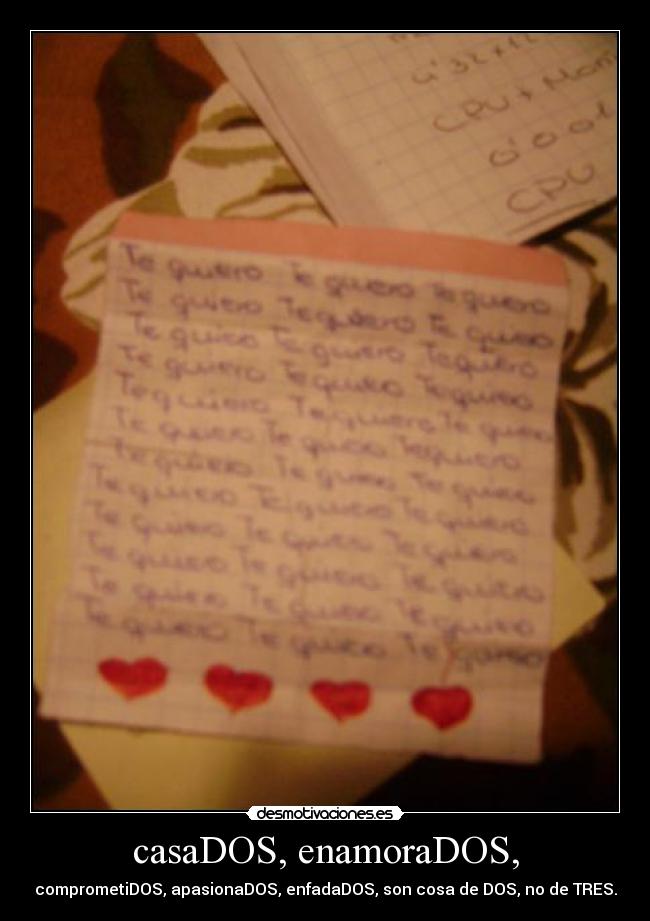 CPU +
0'001
CPU
Te quiero Te quiero Te quiero
Te quiero Te quiero Te quiero
Te quiero Te quiero Te quiero
Te quiero Te quiero Te quiero
Te quiero Te quiero Te quiero
Te quiero Te quiero Te quiero
Te quiero Te quiero Te quiero
Te quiero Te quiero Te quiero
Te quiero Te quiero Te quiero
Te quiero Te quiero Te quiero
Te quiero Te quiero Te quiero
Te quiero Te quiero Te quiero
desmotivaciones.es
casaDOS, enamoraDOS,
comprometiDOS, apasionaDOS, enfadaDOS, son cosa de DOS, no de TRES.